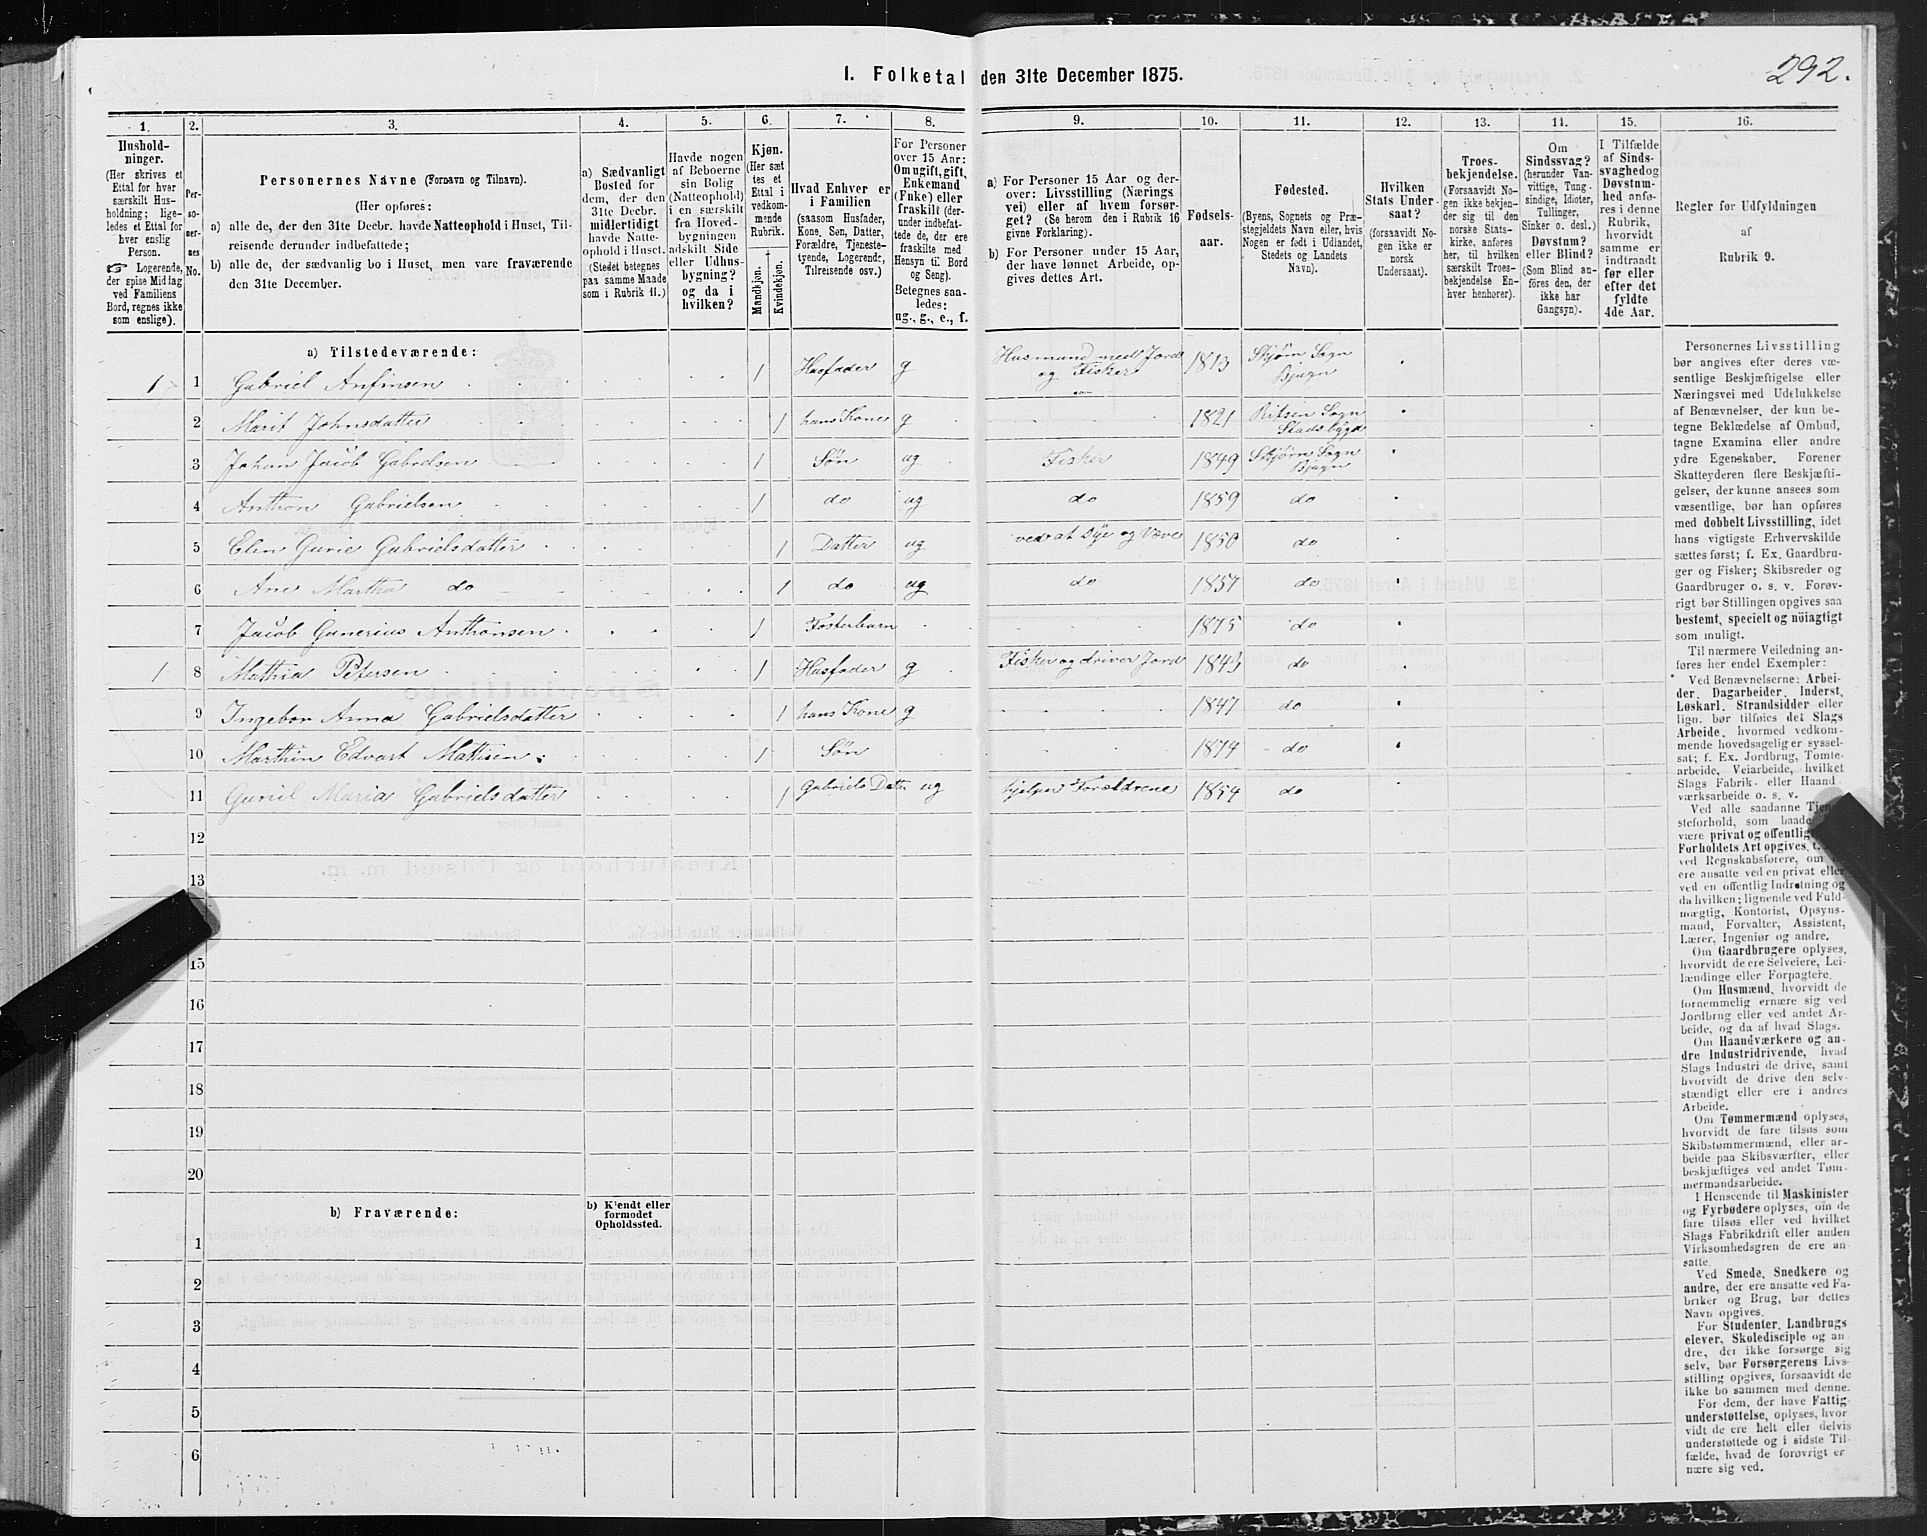 292.
1. Folketal den 31te December 1875.
1. 2. 3. 4. 5. 6. 7. 8. 9. 10. 11. 12. 13. 14. 15. 16.
Hushold-
ninger.
(Her skrives et
Ettal for hver
særskilt Hus-
holdning; lige-
ledes et Ettal for
hver enslig
Person.
☞ Logerende,
der spise Middag
ved Familiens
Bord, regnes ikke
som enslige).
Per-
so-
ner-
nes
No.
Personernes Navne (Fornavn og Tilnavn).
(Her opføres:
a) alle de, der den 31te Decbr. havde Natteophold i Huset, Til-
reisende derunder indbefattede;
b) alle de, der sædvanlig bo i Huset, men vare fraværende
den 31te December.
a) Sædvanligt
Bosted for
dem, der den
31te Decbr.
midlertidigt
havde Natte-
ophold i Huset.
(Stedet betegnes
paa samme Maade
som i Rubrik 11.)
Havde nogen
af Beboerne
sin Bolig
(Natteophold)
i en særskilt
fra Hoved-
bygningen
adskilt Side
eller Udhus-
bygning?
og da i
hvilken?
Kjøn.
(Her sæt
tes et
Ettal i
vedkom-
mende
Rubrik.
Mandkjøn.
Kvindekjøn.
Hvad Enhver er
i Familien
(saasom Husfader,
Kone, Søn, Datter,
Forældre, Tjeneste-
tyende, Logerende,
Tilreisende osv.)
For Personer
over 15 Aar:
Om ugift, gift,
Enkemand
(Enke) eller
fraskilt (der-
under indbefat-
tede de, der ere
fraskilte med
Hensyn til Bord
og Seng).
Betegnes saa-
ledes:
ug., g., e., f.
a) For Personer 15 Aar og der-
over: Livsstilling (Nærings
vei) eller af hvem forsør-
get? (Se herom den i Rubrik 16
givne Forklaring).
b) For Personer under 15 Aar,
der have lønnet Arbeide, op-
gives dettes Art.
Fødsels-
aar.
Fødested.
(Byens, Sognets og Præ-
stegjeldets Navn eller, hvis
Nogen er født i Udlandet,
Stedets og Landets
Navn).
Hvilken
Stats Under-
saat?
(forsaavidt No-
gen ikke er
norsk
Undersaat).
Troes-
bekjendelse.
(Forsaavidt No-
gen ikke bekjen-
der sig til den
norske Stats-
kirke, anføres
her, til hvilken
særskilt Troes-
bekjendelse En-
hver henhører).
Om
Sindssvag?
(herunder Van-
vittige, Tung-
sindige, Idioter,
Tullinger,
Sinker o. desl.)
Døvstum?
eller Blind?
(Som Blind an-
føres den, der
ikke har
Gangsyn).
I Tilfælde
af Sinds-
svaghed og
Døvstum-
hed anfø-
res i denne
Rubrik,
hvorvidt
samme er
indtraadt
før eller
efter det
fyldte
4de Aar.
Regler for Udfyldningen
af
Rubrik 9.
a) Tilstedeværende:
1 1 Gabriel Anfinsen 1 Husfader g Husmand med Jord og Fisker 1813 Skjørn Sogn Bjugn
2 Marit Johnsdatter 1 hans Kone g 1821 Ritsen Sogn Stadsbygd
3 Johan Jacob Gabrielsen 1 Søn ug Fisker 1849 Skjørn Sogn Bjugn
4 Anthon Gabrielsen 1 do ug do 1859 do
5 Elen Gurie Gabrielsdatter 1 Datter ug ved at Sye og Væve 1850 do
6 Ane Martha do 1 do ug do 1857 do
7 Jacob Gunerius Anthonsen 1 Fosterbarn 1875 do
1 8 Mathia Petersen 1 Husfader g Fisker og driver Jord 1843 do
9 Ingebor Anna Gabrielsdatter 1 hans Kone g 1847 do
10 Marthin Edvart Mattisen 1 Søn 1874 do
11 Guriel Maria Gabrielsdatter 1 Gabriels Datter ug hjelper Foreldrene 1854 do
12
13
15
16
17
18
19
20
b) Fraværende:
b) Kjendt eller
formodet
Opholdssted.
1
2
3
4
5
6
Personernes Livsstilling
bør angives efter deres væ-
sentlige Beskjæftigelse eller
Næringsvei med Udelukkelse
af Benævnelser, der kun be-
tegne Beklædelse af Ombud,
tagne Examina eller andre
ydre Egenskaber. Forener
Skatteyderen flere Beskjæfti-
gelser, der kunne ansees som
væsentlige, bør han opføres
med dobbelt Livsstilling, idet
hans vigtigste Erhvervskilde
sættes først; f. Ex. Gaardbru-
ger og Fisker; Skibsreder og
Gaardbruger o. s. v. Forøv-
rigt bør Stillingen opgives saa
bestemt, specielt og nöiagtigt
som muligt.
Til nærmere Veiledning an-
føres her endel Exempler:
Ved Benævnelserne: Arbei-
der, Dagarbeider, Inderst,
Løskarl, Strandsidder eller
lign. bør tilføies det Slags
Arbeide, hvormed vedkom-
mende hovedsagelig er syssel-
sat; f. Ex. Jordbrug, Tomte-
arbeide, Veiarbeide, hvilket
Slags Fabrik- eller Haand-
værksarbeide o. s. v.
Ved alle saadanne
steforhold, som baade
være privat og offentlig
Forholdets Art opgives,
ved Regnskabsførere, om
ere ansatte ved en privat eller
ved en offentlig Indretning og
da hvilken; lignende ved Fuld-
mægtig, Kontorist, Opsyns-
mand, Forvalter, Assistent,
Lærer, Ingeniør og andre.
Om Gaardbrugere oplyses,
hvorvidt de ere Selveiere, Lei-
lændinge eller Forpagtere.
Om Husmænd, hvorvidt de
fornemmelig ernære sig ved
Jordbrug eller ved andet Ar-
beide, og da af hvad Slags.
Om Haandværkere og an-
dre Industridrivende, hvad
Slags Industri de drive, samt
hvorvidt de drive den selv-
stændigt eller ere i andres
Arbeide.
Om Tømmermænd oplyses,
hvorvidt de fare tilsøs som
Skibstømmermænd, eller ar-
beide paa Skibsværfter, eller
beskjæftiges ved andet Tøm-
mermandsarbeide.
I Henseende til Maskinister
og Fyrbødere oplyses, om de
fare tilsøs eller ved hvilket
Slags Fabrikdrift eller anden
Virksomhedsgren de ere an-
satte.
Ved Smede, Snedkere og
andre, der ere ansatte ved Fa-
briker og Brug, bør dettes
Navn opgives.
For Studenter, Landbrugs
elever, Skoledisciple og an-
dre, der ikke forsørge sig
selv, bør Forsørgerens Livs-
stilling opgives, forsaavidt de
ikke bo sammen med denne.
For dem, der have Fattig-
understøttelse, oplyses, hvor-
vidt de ere helt eller delvis
understøttede og i sidste Til-
fælde, hvad de forøvrigt er-
nære sig ved.